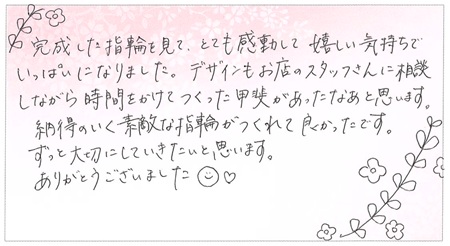 完成した指輪を見て、とても感動して嬉しい気持ちで
いっぱいになりました。デザインもお店のスタッフさんに相談
しながら時間をかけてつくった甲斐があったなあと思います。
納得のいく素敵な指輪がつくれて良かったです。
ずっと大切にしていきたいと思います。
ありがとうございました